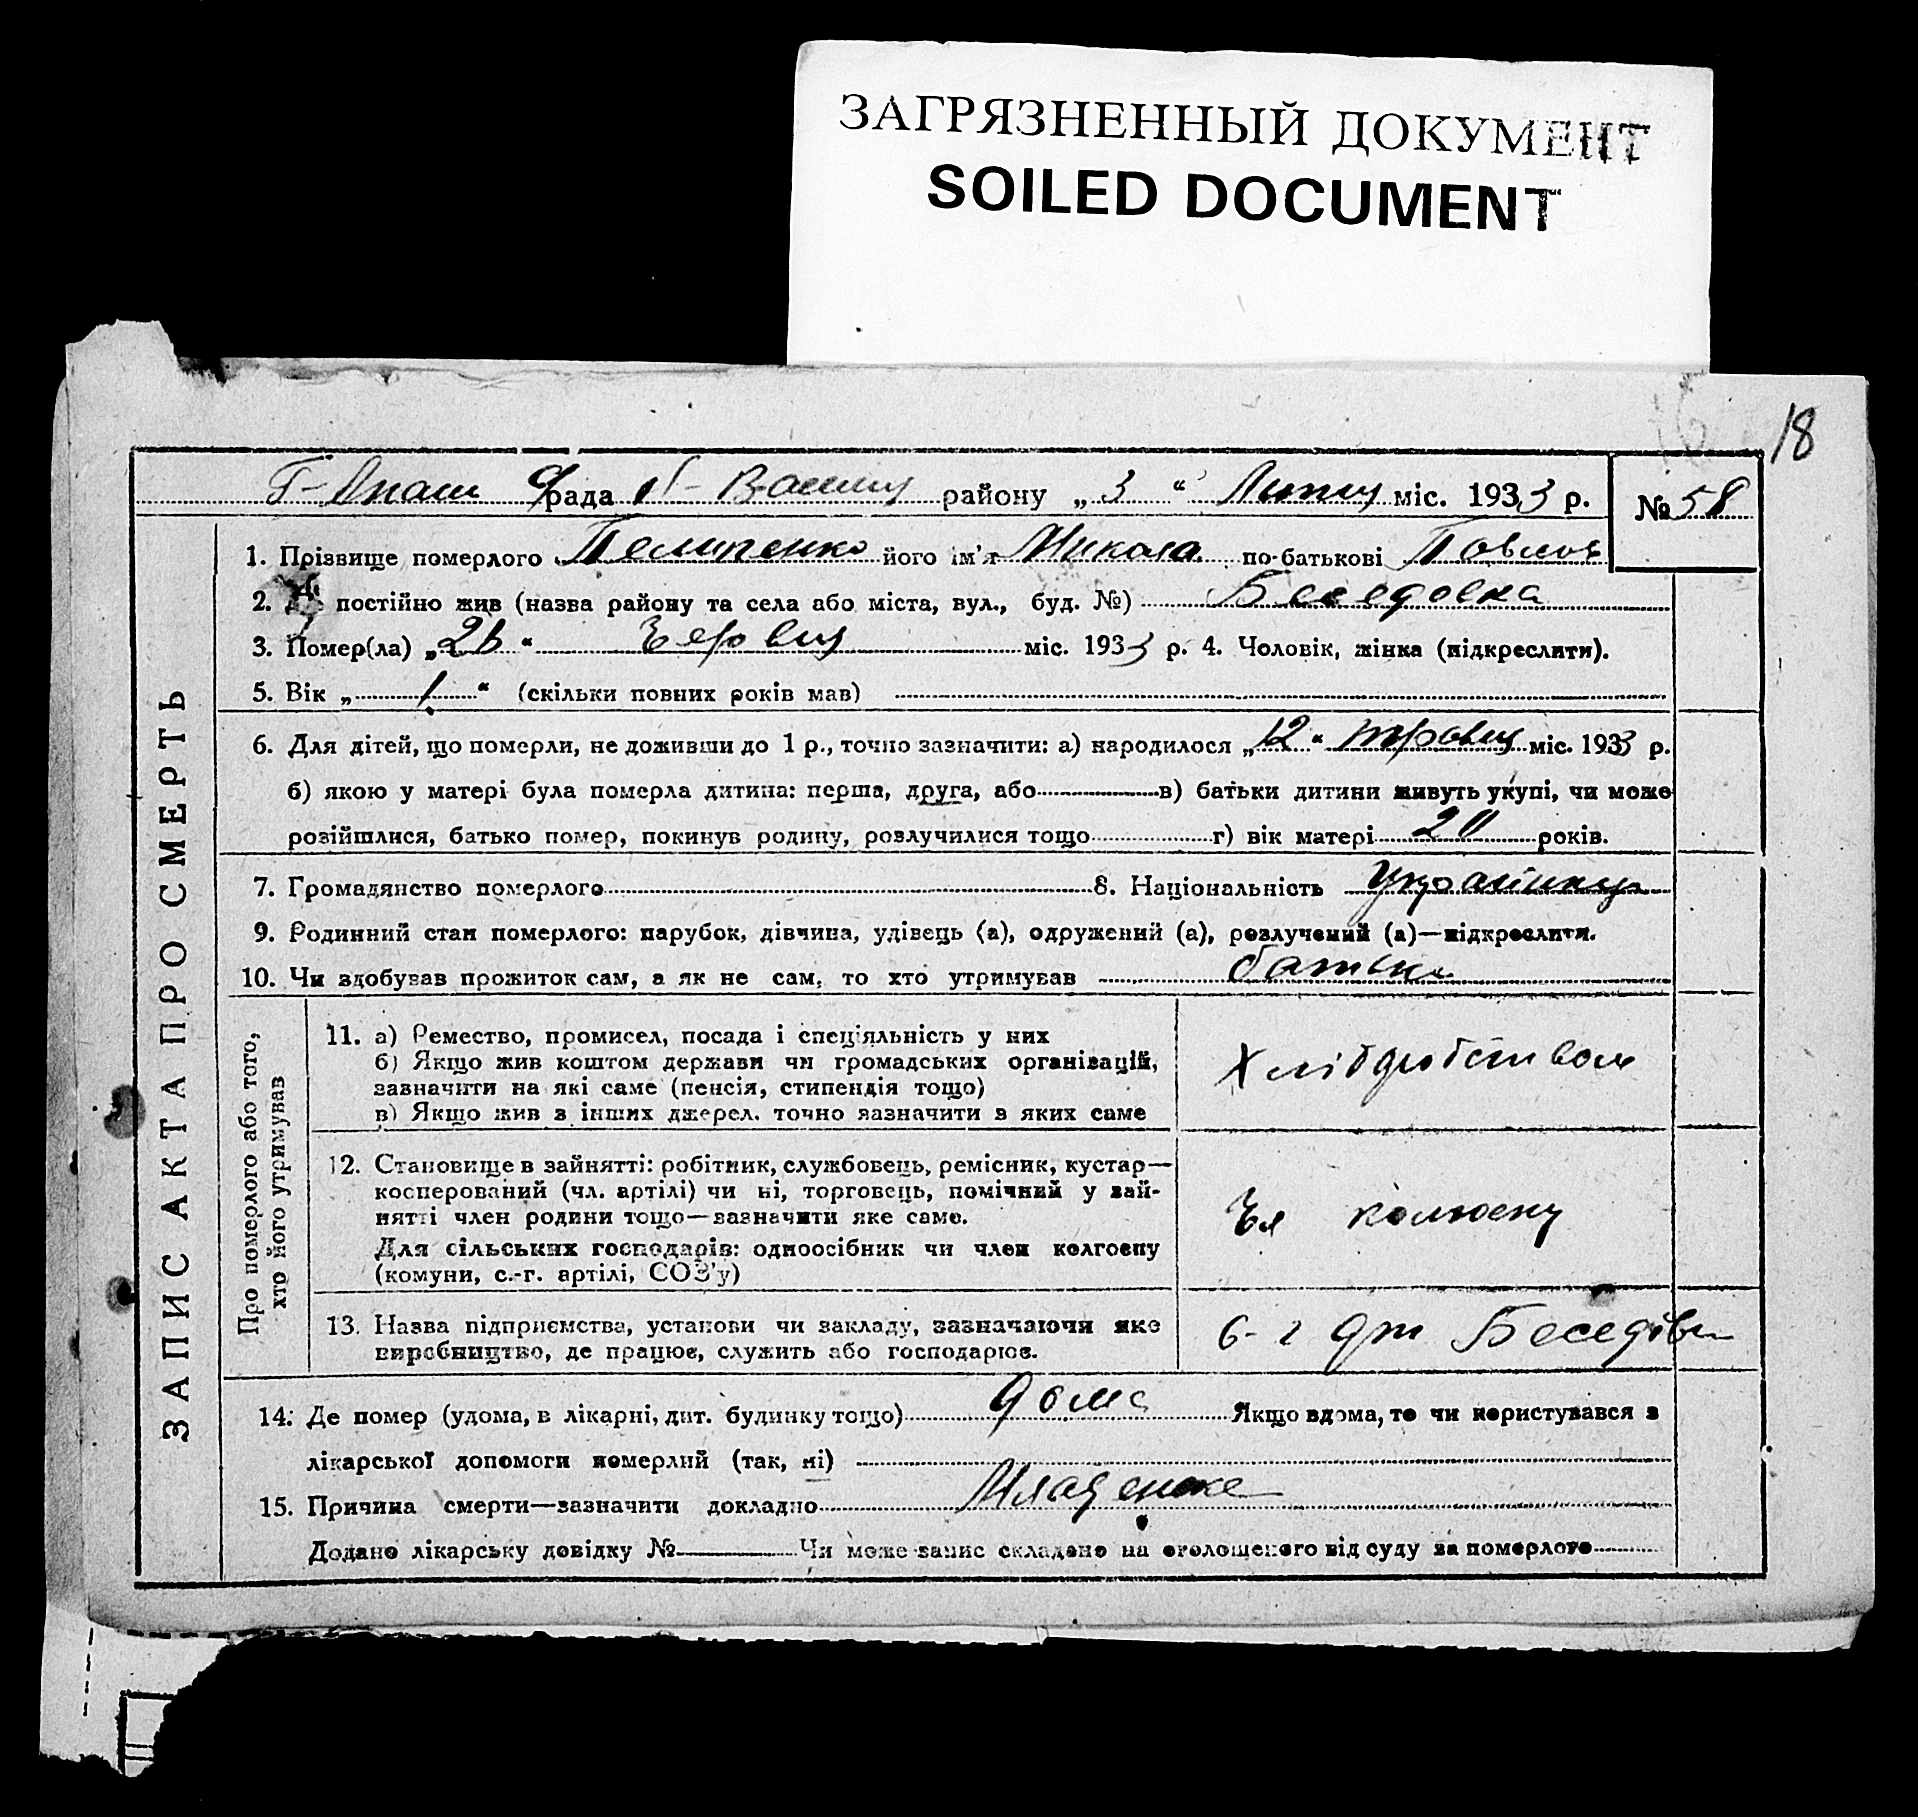 ЗАГРЯЗНЕННЫЙ ДОКУМЕНТ
SOILED DOCUMENT
18
рада району „3“ Липця міс. 1933 р. № 58
1. Прізвище померлого Пелипенко його ім'я Микола по-батькові Павлов
2. Де постійно жив (назва району та села або міста, вул., буд. №) Беседовка
3. Помер(ла) „26“ Червця міс. 1933 р. 4. Чоловік, жінка (підкреслити).
5. Вік „1“ (скільки повних років мав)
6. Для дітей, що померли, не доживши до 1 р., точно зазначити: а) народилося „12“ травця міс. 1933 р.
б) якою у матері була померла дитина: перша, друга, або в) батьки дитини живуть укупі, чи може
розійшлися, батько помер, покинув родину, розлучилися тощо г) вік матері 20 років.
7. Громадянство померлого 8. Національність
9. Родинний стан померлого: парубок, дівчина, удівець (а), одружений (а), розлучений (а)—підкреслити.
10. Чи здобував прожиток сам, а як не сам, то хто утримував батьки
ЗАПИС АКТА ПРО СМЕРТЬ
Про померлого або того,
хто його утримував
11. а) Ремество, промисел, посада і спеціяльність у них
б) Якщо жив коштом держави чи громадських організацій,
зазначити на які саме (пенсія, стипендія тощо)
в) Якщо жив з інших джерел. точно зазначити з яких саме
Хлібдробством
12. Становище в зайнятті: робітник, службовець, ремісник, кустар—
косперований (чл. артілі) чи ні, торговець, помічний у зай-
нятті член родини тощо—зазначити яке саме.
Для сільських господарів: одноосібник чи член колгоспу
(комуни, с.-г. артілі, СОЗ'у)
Чл
13. Назва підприємства, установи чи закладу, зазначаючи яке
виробництво, де працює, служить або господарює.
14. Де помер (удома, в лікарні, дит. будинку тощо) дома Якщо вдома, то чи користувався з
лікарської допомоги померлий (так, ні)
15. Причина смерти—зазначити докладно
Додано лікарську довідку № Чи може запис складено на оголошеного від суду за померлого